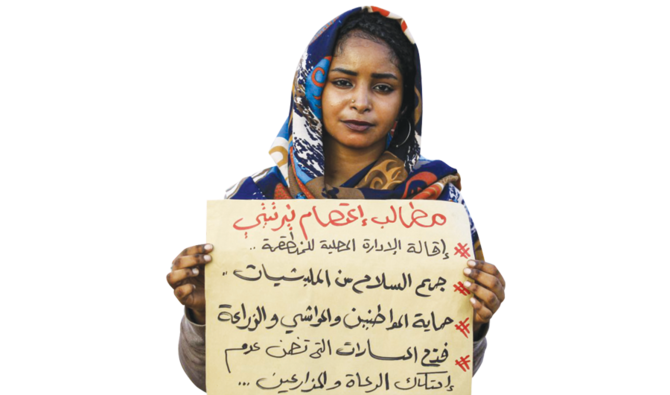 مطالب إعتصام نيرتتي
# إقالة الإدارة المحلية للمنطقة ..
# جمع السلاح من المليشيات ..
# حماية المواطنين والمواشي والزراعة
# فتح المسارات التي تضمن عدم
إحتكاك الرعاة والمزارعين ...